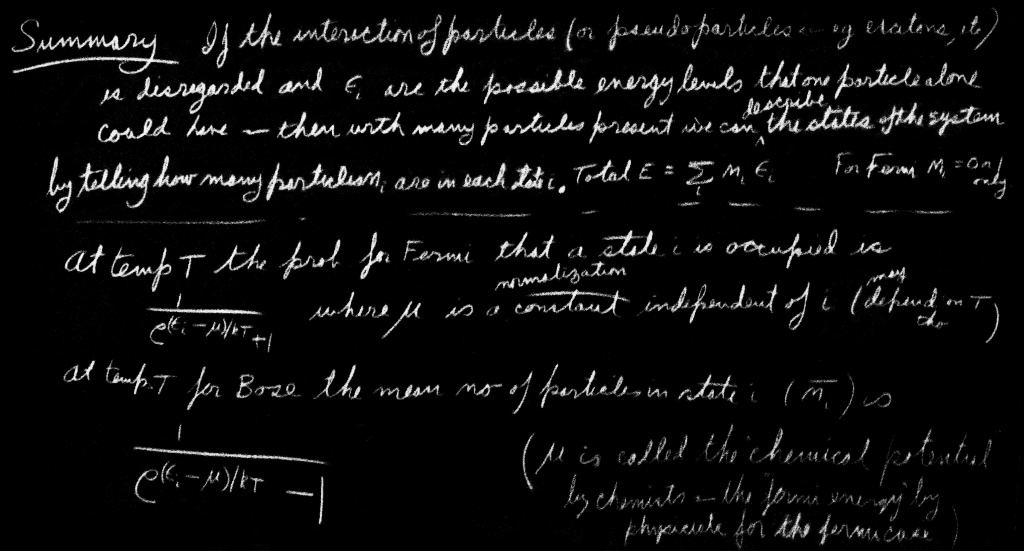 Summary If the interaction of particles (or pseudoparticles - eg
is disregarded and ϵᵢ are the possible energy levels that one particle alone
could have — then with many particles present we can describe the states of the system
by telling how many particles nᵢ are in each state i. Total E = Σᵢ nᵢ ϵᵢ For Fermi nᵢ = 0 or 1 only
at temp T the prob for Fermi that a state i is occupied is
1 / e^(ϵᵢ - μ)/kT +1 where μ is a normalization constant independent of i (may depend on T tho)
at temp. T for Bose the mean no of particles in state i (n̄ᵢ) is
1 / e^(ϵᵢ - μ)/kT - 1
(μ is called the chemical potential
by chemists - the fermi energy by
physicists for the fermi case)